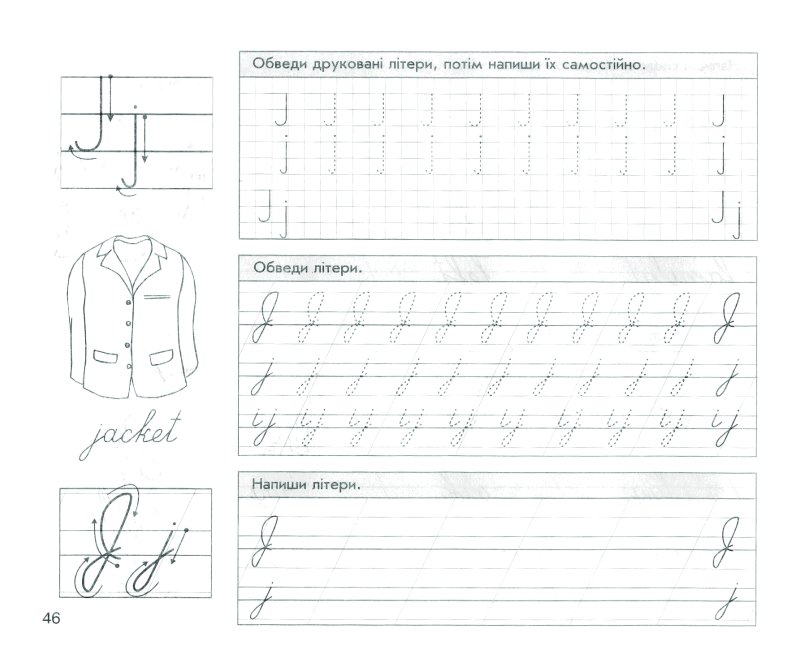 J j
Обведи друковані літери, потім напиши їх самостійно.
J J J J J J J J J J
j j j j j j j j j j
J j J j
jacket
Обведи літери.
J J J J J J J J J J J
j j j j j j j j j j j
ij ij ij ij ij ij ij ij ij ij ij
J j
Напиши літери.
J J
j j
46